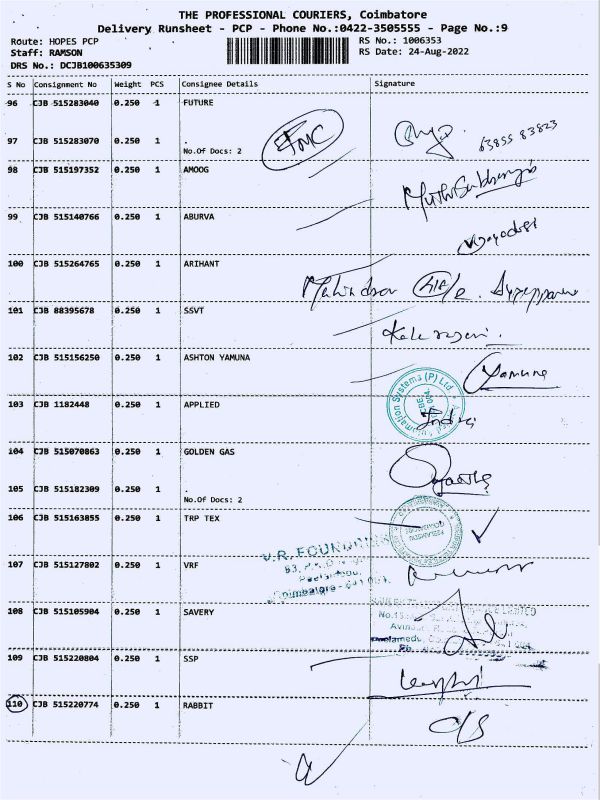 THE PROFESSIONAL COURIERS, Coimbatore
Delivery Runsheet - PCP - Phone No.:0422-3505555 - Page No.:9
Route: HOPES PCP RS No.: 1006353
Staff: RAMSON RS Date: 24-Aug-2022
DRS No.: DCJB100635309
S No Consignment No Weight PCS Consignee Details Signature
96 CJB 515283040 0.250 1 FUTURE
97 CJB 515283070 0.250 1 .
No.Of Docs: 2
63855 83823
98 CJB 515197352 0.250 1 AMOOG
99 CJB 515140766 0.250 1 ABURVA
100 CJB 515264765 0.250 1 ARIHANT
101 CJB 88395678 0.250 1 SSVT
102 CJB 515156250 0.250 1 ASHTON YAMUNA
Yamuna
103 CJB 1182448 0.250 1 APPLIED
104 CJB 515070863 0.250 1 GOLDEN GAS
105 CJB 515182309 0.250 1 .
No.Of Docs: 2
106 CJB 515163855 0.250 1 TRP TEX
V.R. FOUNDRIES
107 CJB 515127802 0.250 1 VRF
Coimbatore
108 CJB 515105904 0.250 1 SAVERY
109 CJB 515220804 0.250 1 SSP
110 CJB 515220774 0.250 1 RABBIT